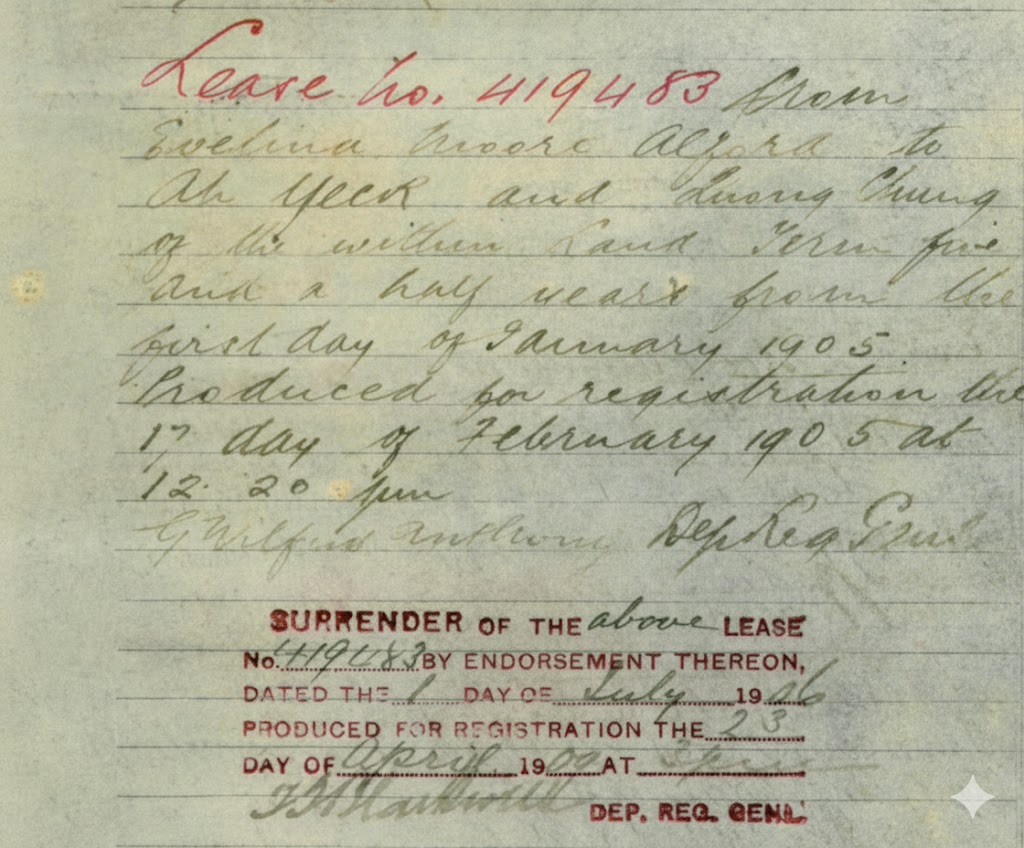 Lease No. 419483 from
Evelina Moore Alford to
Ah Yeck and Luong Chung
of the within Land Term five
and a half years from the
first day of January 1905
Produced for registration the
17 day of February 1905 at
12.20 pm
G Wilfred Anthony Dep Reg Genl
SURRENDER OF THE above LEASE
No. 419483 BY ENDORSEMENT THEREON,
DATED THE 1 DAY OF July 1906
PRODUCED FOR REGISTRATION THE 23
DAY OF April 1909 AT 3 pm
DEP. REG. GENL.